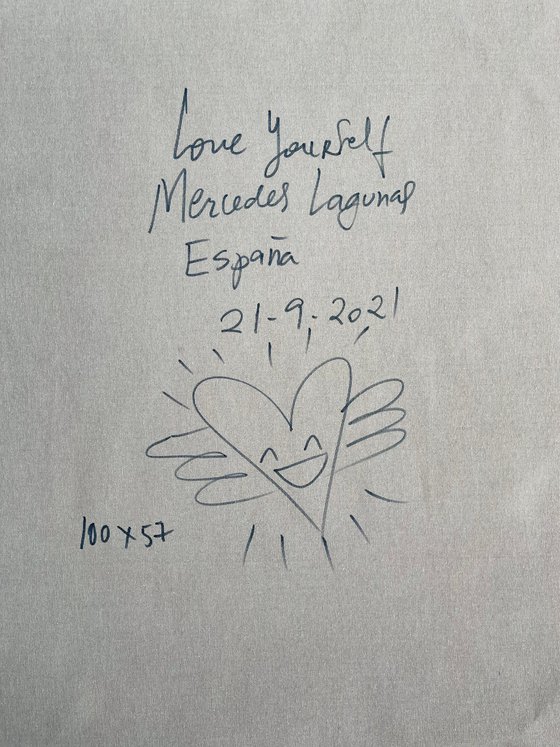 Love Yourself
Mercedes Lagunas
España
21-9-2021
100x57